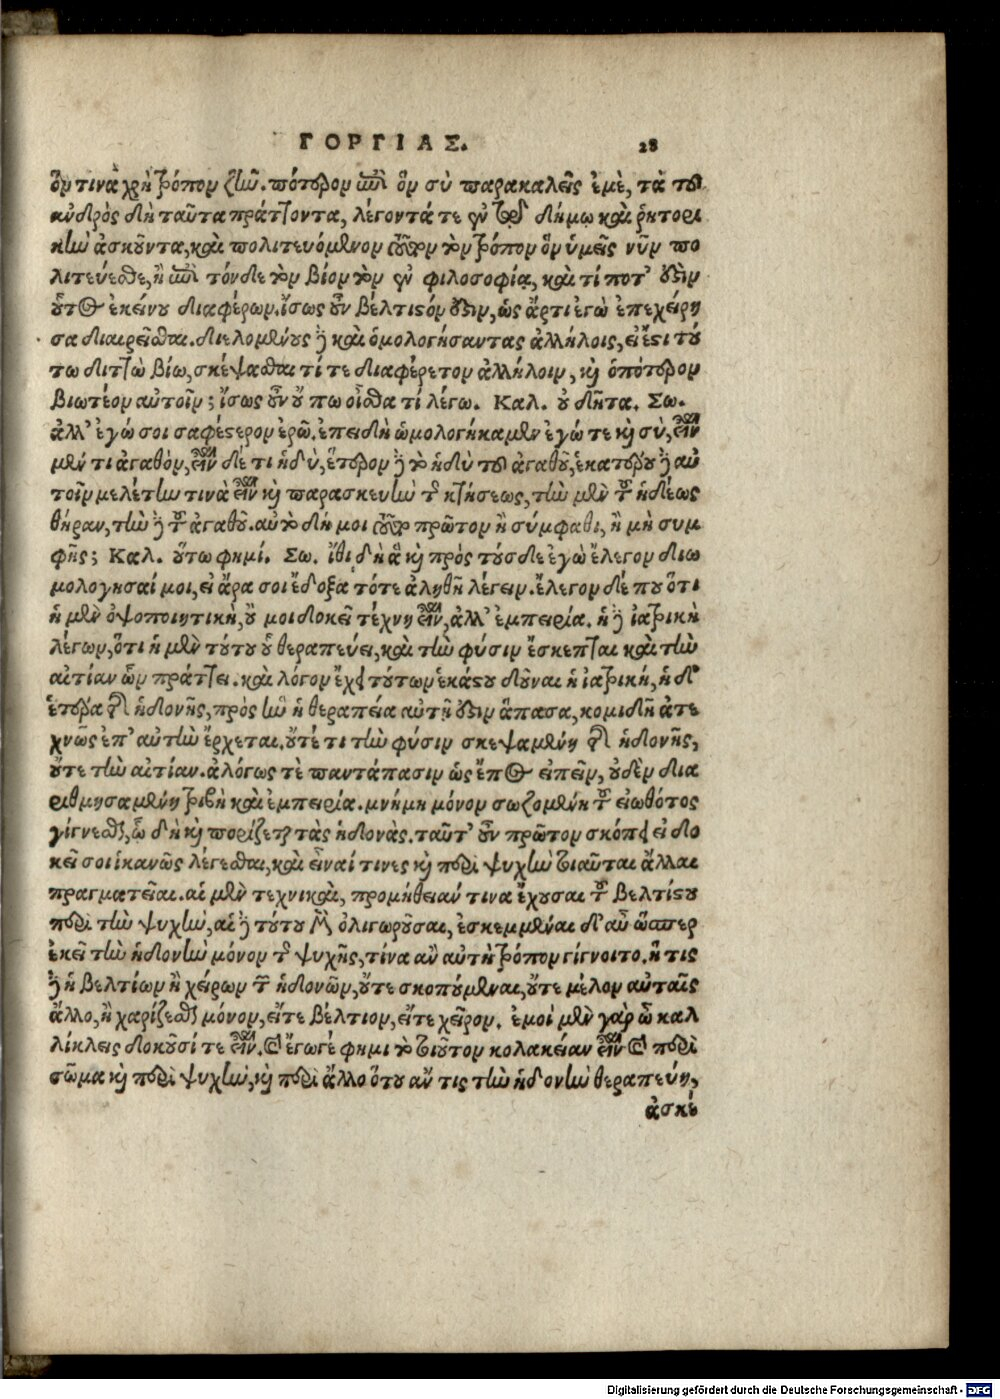 ΓΟΡΓΙΑΣ. 28
ὅντινα χρὴ τρόπον ζῆν. πότερον ἐπὶ ὃν σὺ παρακαλεῖς ἐμὲ, τὰ τοῦ
ἀνδρὸς δὴ ταῦτα πράττοντα, λέγοντά τε ἐν τῷ δήμῳ καὶ ῥητορι
κὴν ἀσκοῦντα, καὶ πολιτευόμενον τοῦτον τὸν τρόπον ὃν ὑμεῖς νῦν πο
λιτεύεσθε, ἢ ἐπὶ τόνδε τὸν βίον τὸν ἐν φιλοσοφίᾳ, καὶ τί ποτ' ἐστὶν
οὗτος ἐκείνου διαφέρων. ἴσως οὖν βέλτιστόν ἐστιν, ὡς ἄρτι ἐγὼ ἐπεχείρη
σα διαιρεῖσθαι. διελομένους δὲ καὶ ὁμολογήσαντας ἀλλήλοις, εἰ ἔστι τού
τω διττὼ βίω, σκέψασθαι τί τε διαφέρετον ἀλλήλοιν, καὶ ὁπότερον
βιωτέον αὐτοῖν; ἴσως οὖν οὔ πω οἶσθα τί λέγω. Καλ. οὐ δῆτα. Σω.
ἀλλ' ἐγώ σοι σαφέστερον ἐρῶ. ἐπειδὴ ὡμολογήκαμεν ἐγώ τε καὶ σὺ, εἶναι
μέν τι ἀγαθὸν, εἶναι δέ τι ἡδὺ, ἕτερον δὲ τὸ ἡδὺ τοῦ ἀγαθοῦ, ἑκατέρου δὲ αὐ
τοῖν μελέτην τινὰ εἶναι καὶ παρασκευὴν τῆς κτήσεως, τὴν μὲν τοῦ ἡδέως
θήραν, τὴν δὲ τοῦ ἀγαθοῦ. αὐτὸ δή μοι τοῦτο πρῶτον ἢ σύμφαθι, ἢ μὴ συμ
φῇς; Καλ. οὕτω φημί. Σω. ἴθι δὴ ἃ καὶ πρὸς τούσδε ἐγὼ ἔλεγον διω
μολόγησαί μοι, εἰ ἄρα σοι ἔδοξα τότε ἀληθῆ λέγειν. ἔλεγον δέ που ὅτι
ἡ μὲν ὀψοποιητικὴ, οὔ μοι δοκεῖ τέχνη εἶναι, ἀλλ' ἐμπειρία. ἡ δὲ ἰατρικὴ
λέγων, ὅτι ἡ μὲν τούτου οὗ θεραπεύει, καὶ τὴν φύσιν ἔσκεπται καὶ τὴν
αἰτίαν ὧν πράττει. καὶ λόγον ἔχει τούτων ἑκάστου δοῦναι ἡ ἰατρικὴ, ἡ δ'
ἑτέρα τῆς ἡδονῆς, πρὸς ἣν ἡ θεραπεία αὐτῇ ἐστιν ἅπασα, κομιδῇ ἀτε
χνῶς ἐπ' αὐτὴν ἔρχεται. οὔτέ τι τὴν φύσιν σκεψαμένη τῆς ἡδονῆς,
οὔτε τὴν αἰτίαν. ἀλόγως τὲ παντάπασιν ὡς ἔπος εἰπεῖν, οὐδὲν δια
ριθμησαμένη τριβῇ καὶ ἐμπειρίᾳ. μνήμη μόνον σωζομένη τοῦ εἰωθότος
γίγνεσθαι, ᾧ δὴ καὶ πορίζεται τὰς ἡδονάς. ταῦτ' οὖν πρῶτον σκόπει εἰ δο
κεῖ σοι ἱκανῶς λέγεσθαι, καὶ εἶναί τινες καὶ περὶ ψυχὴν τοιαῦται ἄλλαι
πραγματεῖαι. αἱ μὲν τεχνικαὶ, προμήθειάν τινα ἔχουσαι τοῦ βελτίστου
περὶ τὴν ψυχὴν, αἱ δὲ τούτου μὲν ὀλιγωροῦσαι, ἐσκεμμέναι δ' αὖ ὥσπερ
ἐκεῖ τὴν ἡδονὴν μόνον τῆς ψυχῆς, τίνα ἂν αὐτῇ τρόπον γίγνοιτο. ἥτις
δὲ ἡ βελτίων ἢ χείρων τῶν ἡδονῶν, οὔτε σκοπούμεναι, οὔτε μέλον αὐταῖς
ἄλλο, ἢ χαρίζεσθαι μόνον, εἴτε βέλτιον, εἴτε χεῖρον. ἐμοὶ μὲν γὰρ ὦ καλ
λίκλεις δοκοῦσί τε εἶναι. καὶ ἔγωγέ φημι τὸ τοιοῦτον κολακείαν εἶναι καὶ περὶ
σῶμα καὶ περὶ ψυχὴν, καὶ περὶ ἄλλο ὅτου ἄν τις τὴν ἡδονὴν θεραπεύῃ,
ἀσκέ
Digitalisierung gefördert durch die Deutsche Forschungsgemeinschaft - DFG